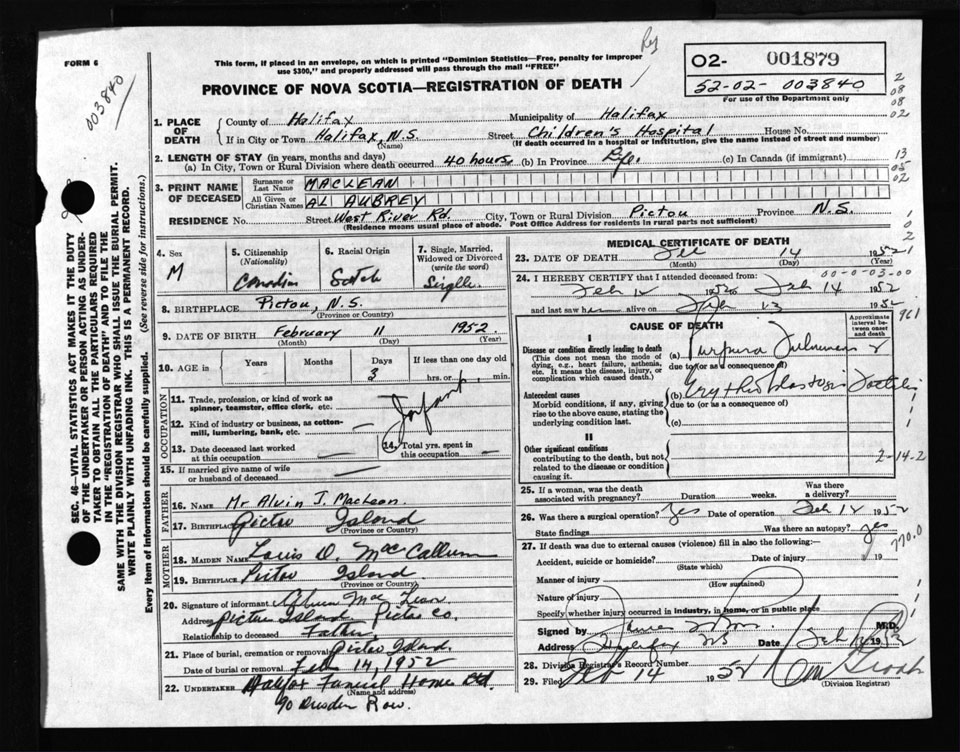 FORM 6
This form, if placed in an envelope, on which is printed "Dominion Statistics—Free, penalty for improper
use $300," and properly addressed will pass through the mail "FREE"
O2- 001879
52-02- 003840
For use of the Department only
003840
PROVINCE OF NOVA SCOTIA—REGISTRATION OF DEATH
2
08
08
02
13
05
02
1. PLACE OF DEATH
County of Halifax Municipality of Halifax
If in City or Town Halifax, N.S. Street Children's Hospital House No.
(Name) (If death occurred in a hospital or institution, give the name instead of street and number)
2. LENGTH OF STAY (in years, months and days)
(a) In City, Town or Rural Division where death occurred 40 hours (b) In Province Life. (c) In Canada (if immigrant)
3. PRINT NAME OF DECEASED
Surname or Last Name MACLEAN
All Given or Christian Names AL AUBREY
RESIDENCE No. Street West River Rd. City, Town or Rural Division Pictou Province N.S.
(Residence means usual place of abode. Post Office Address for residents in rural parts not sufficient)
4. Sex M
5. Citizenship (Nationality) Canadian
6. Racial Origin Scotch
7. Single, Married, Widowed or Divorced (write the word) Single.
8. BIRTHPLACE Pictou, N.S.
(Province or Country)
9. DATE OF BIRTH February 11 1952
(Month) (Day) (Year)
10. AGE in Years Months Days 3 If less than one day old hrs. or min.
OCCUPATION
11. Trade, profession, or kind of work as spinner, teamster, office clerk, etc. Infant
12. Kind of industry or business, as cotton-mill, lumbering, bank, etc. —
13. Date deceased last worked at this occupation —
14. Total yrs. spent in this occupation —
15. If married give name of wife or husband of deceased —
FATHER
16. NAME Mr Alvin J. MacLean.
17. BIRTHPLACE Pictou Island
(Province or Country)
MOTHER
18. MAIDEN NAME Louis D. MacCallum
19. BIRTHPLACE Pictou Island.
(Province or Country)
20. Signature of informant Alvin MacLean
Address Pictou Island Pictou Co.
Relationship to deceased Father.
21. Place of burial, cremation or removal Pictou Island.
Date of burial or removal Feb 14, 1952
22. UNDERTAKER Halifax Funeral Home Ltd.
(Name and address)
90 Dresden Row.
MEDICAL CERTIFICATE OF DEATH
23. DATE OF DEATH Feb 14 1952
(Month) (Day) (Year)
00-0-03-00
24. I HEREBY CERTIFY that I attended deceased from:
Feb 12 1952 to Feb 14 1952
and last saw h alive on Feb 13 1952
CAUSE OF DEATH
Approximate interval between onset and death
I
Disease or condition directly leading to death
(This does not mean the mode of dying, e.g., heart failure, asthenia, etc. It means the disease, injury, or complication which caused death.)
(a) Purpura Fulminans
due to (or as a consequence of)
Antecedent causes
Morbid conditions, if any, giving rise to the above cause, stating the underlying condition last.
(b) Erythroblastosis Foetalis
due to (or as a consequence of)
(c)
II
Other significant conditions
contributing to the death, but not related to the disease or condition causing it.
2-14-2
25. If a woman, was the death associated with pregnancy? Duration weeks. Was there a delivery?
26. Was there a surgical operation? Yes Date of operation Feb 12 1952
State findings Was there an autopsy? yes
27. If death was due to external causes (violence) fill in also the following:—
770.0
Accident, suicide or homicide? Date of injury 19
(State which)
Manner of injury
(How sustained)
Nature of injury
Specify whether injury occurred in industry, in home, or in public place
Signed by M.D.
Address Halifax NS Date Feb
28. Division Registrar's Record Number
29. Filed Feb 14 1952
(Division Registrar)
SEC. 46—VITAL STATISTICS ACT MAKES IT THE DUTY
OF THE UNDERTAKER OR PERSON ACTING AS UNDER-
TAKER TO OBTAIN ALL THE PARTICULARS REQUIRED
IN THE "REGISTRATION OF DEATH" AND TO FILE IT
WITH THE DIVISION REGISTRAR WHO SHALL ISSUE THE BURIAL PERMIT.
SAME WRITE PLAINLY WITH UNFADING INK. THIS IS A PERMANENT RECORD.
Every item of information should be carefully supplied. (See reverse side for instructions.)